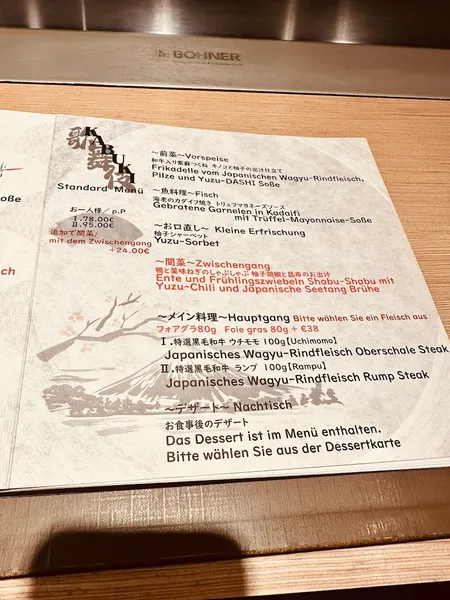 BOHNER
歌舞伎
KABUKI
Standard Menü
お一人様/p.P
I.78.00€
II.95.00€
追加で間菜/
mit dem Zwischengang
+24.00€
~前菜~Vorspeise
和牛入り紫蘇つくね キノコと柚子の出汁仕立て
Frikadelle vom Japanischen Wagyu-Rindfleisch,
Pilze und Yuzu-DASHI Soße
~魚料理~Fisch
海老のカダイフ焼き トリュフマヨネーズソース
Gebratene Garnelen in Kadaifi
mit Trüffel-Mayonnaise-Soße
~お口直し~ Kleine Erfrischung
柚子シャーベット
Yuzu-Sorbet
~間菜~Zwischengang
鴨と薬味ねぎのしゃぶしゃぶ 柚子胡椒と昆布のお出汁
Ente und Frühlingszwiebeln Shabu-Shabu mit
Yuzu-Chill und Japanische Seetang Brühe
~メイン料理~Hauptgang Bitte wählen Sie ein Fleisch aus
フォアグラ80g Foie gras 80g + €38
I.特選黒毛和牛 ウチモモ 100g【Uchimomo】
Japanisches Wagyu-Rindfleisch Oberschale Steak
II.特選黒毛和牛 ランプ 100g【Rampu】
Japanisches Wagyu-Rindfleisch Rump Steak
~デザート~ Nachtisch
お食事後のデザート
Das Dessert ist im Menü enthalten.
Bitte wählen Sie aus der Dessertkarte